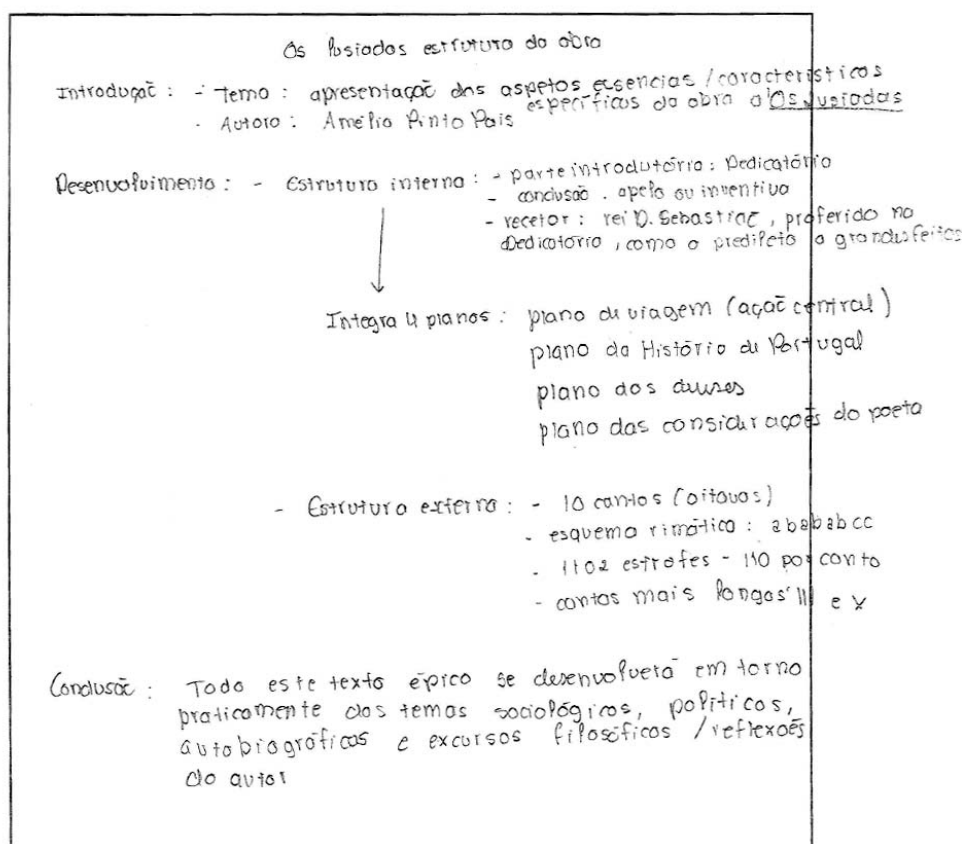 Os Lusiadas estrutura da obra
Introduçaõ : - tema : apresentaçaõ dos aspetos essencias / caracteristicos
específicas da obra d'Os Lusiadas
- Autora : Amélia Pinto Pais
Desenvolvimento : - Estrutura interna : - parte introdutória : Dedicatória
- conclusaõ . apelo ou inventiva
- recetor : rei D. Sebastiaõ , proferido na
Dedicatória , como o predileto a grandes feitos
Integra 4 planos : plano de viagem (açaõ central)
plano da História de Portugal
plano dos deuses
plano das consideraçoẽs do poeta
- Estrutura externa : - 10 cantos (oitavas)
- esquema rimático : abababcc
- 1102 estrofes - 110 por canto
- cantos mais longos III e X
Conclusaõ : Todo este texto épico se desenvolverá em torno
praticamente dos temas sociológicos, políticos,
autobiográficos e excursos filosóficos / reflexoẽs
do autor